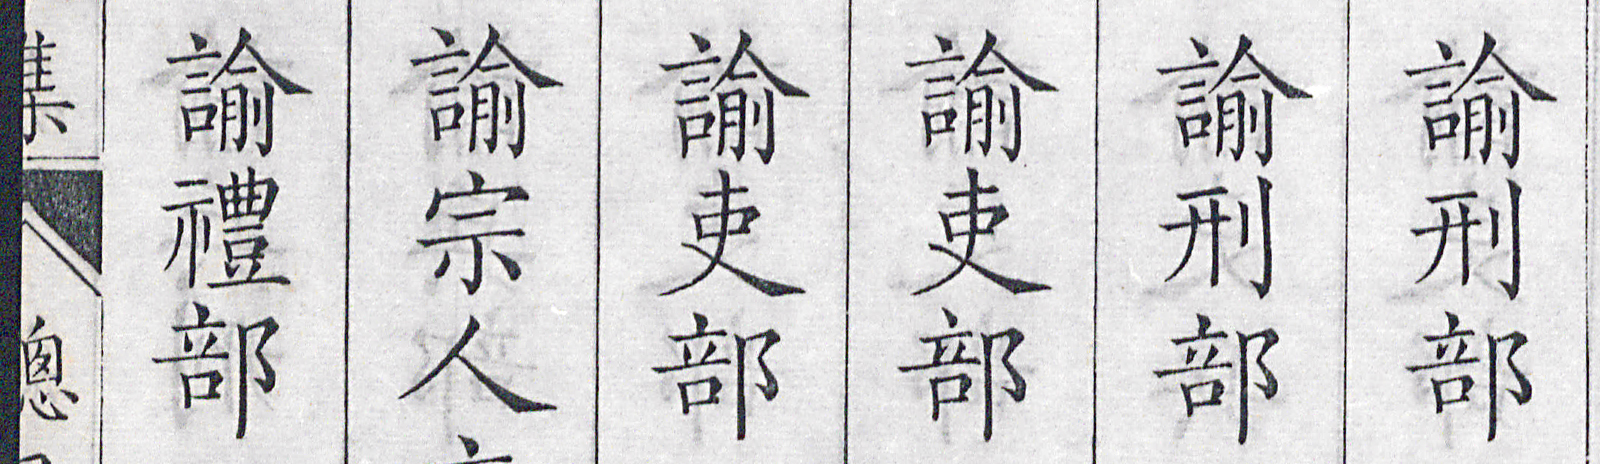 諭刑部
諭刑部
諭吏部
諭吏部
諭宗人
諭禮部